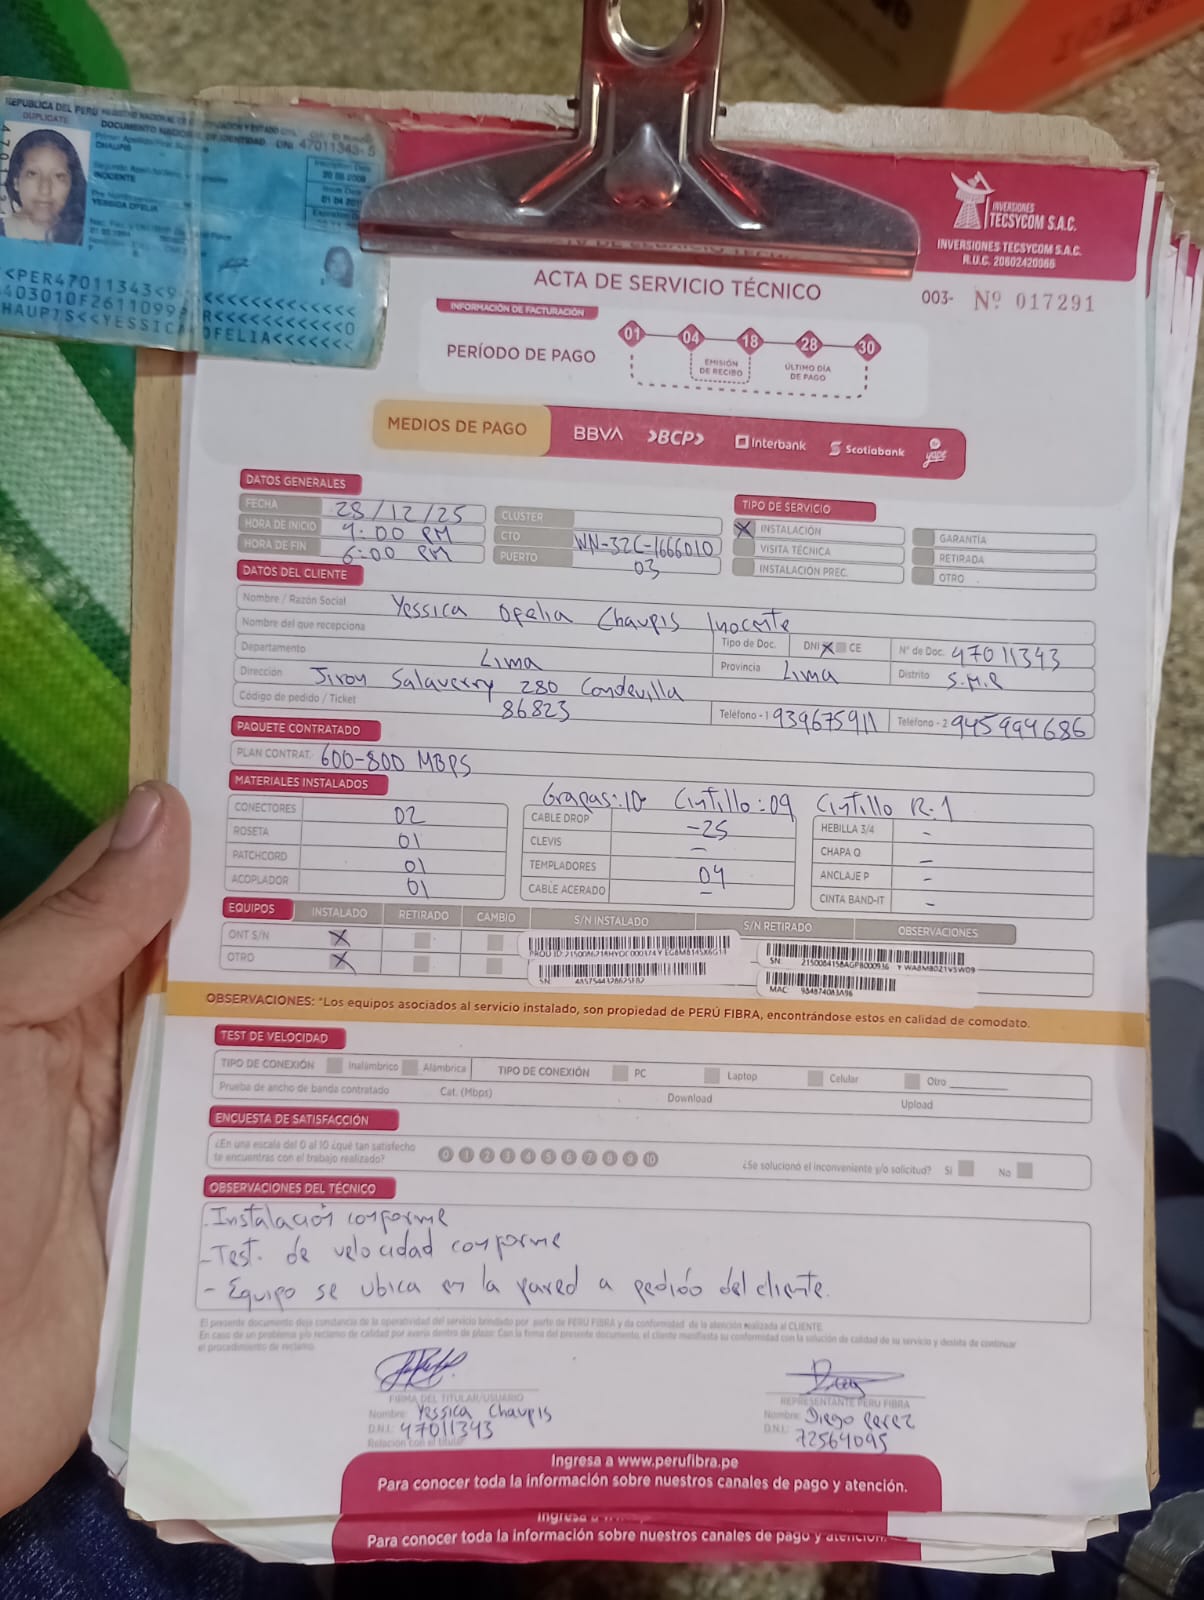 REPUBLICA DEL PERÚ REGISTRO NACIONAL DE IDENTIFICACION Y ESTADO CIVIL
DUPLICATE
DOCUMENTO NACIONAL DE IDENTIDAD DNI 47011343-5
CHAUPIS
INOCENTE
YESSICA OFELIA
<PER47011343<9
HAUPIS<<YESSICA OFELIA<<<<<<<
INVERSIONES
TECSYCOM S.A.C.
INVERSIONES TECSYCOM S.A.C.
R.U.C. 20602420066
ACTA DE SERVICIO TÉCNICO
003- Nº 017291
INFORMACIÓN DE FACTURACIÓN
PERÍODO DE PAGO
01 04 18 28 30
EMISIÓN DE RECIBO
ÚLTIMO DÍA DE PAGO
MEDIOS DE PAGO
BBVA >BCP> Interbank Scotiabank yape
DATOS GENERALES
FECHA 28/12/25
HORA DE INICIO 4:00 PM
HORA DE FIN 6:00 PM
CLUSTER
CTO WN-32C-1666010
PUERTO 03
TIPO DE SERVICIO
X INSTALACIÓN
VISITA TÉCNICA
INSTALACIÓN PREC.
GARANTÍA
RETIRADA
OTRO
DATOS DEL CLIENTE
Nombre / Razón Social Yessica Ofelia Chaupis Inocente
Nombre del que recepciona
Tipo de Doc. DNI X CE
Nº de Doc. 47011343
Departamento Lima
Provincia Lima
Distrito S.M.P
Dirección Jiron Salaverry 280 Condevilla
Código de pedido / Ticket 86823
Teléfono - 1 939675911
Teléfono - 2 945994686
PAQUETE CONTRATADO
PLAN CONTRAT. 600-800 MBPS
MATERIALES INSTALADOS
Grapas:10 Cintillo:09 Cintillo R.1
CONECTORES 02
ROSETA 01
PATCHCORD 01
ACOPLADOR 01
CABLE DROP -25
CLEVIS -
TEMPLADORES 04
CABLE ACERADO -
HEBILLA 3/4 -
CHAPA Q -
ANCLAJE P -
CINTA BAND-IT -
EQUIPOS INSTALADO RETIRADO CAMBIO S/N INSTALADO S/N RETIRADO OBSERVACIONES
ONT S/N X
OTRO X
SN:
MAC:
OBSERVACIONES: "Los equipos asociados al servicio instalado, son propiedad de PERÚ FIBRA, encontrándose estos en calidad de comodato.
TEST DE VELOCIDAD
TIPO DE CONEXIÓN Inalámbrico Alámbrica TIPO DE CONEXIÓN PC Laptop Celular Otro
Prueba de ancho de banda contratado Cat. (Mbps) Download Upload
ENCUESTA DE SATISFACCIÓN
¿En una escala del 0 al 10 ¿qué tan satisfecho
te encuentras con el trabajo realizado?
0 1 2 3 4 5 6 7 8 9 10
¿Se solucionó el inconveniente y/o solicitud? Si No
OBSERVACIONES DEL TÉCNICO
. Instalación conforme
- Test. de velocidad conforme
- Equipo se ubica en la pared a pedido del cliente.
El presente documento deja constancia de la operatividad del servicio brindado por parte de PERU FIBRA y da conformidad de la atención realizada al CLIENTE.
En caso de un problema y/o reclamo de calidad por avería dentro de plazo: Con la firma del presente documento, el cliente manifiesta su conformidad con la solución de calidad de su servicio y desista de continuar
el procedimiento de reclamo.
FIRMA DEL TITULAR/USUARIO
Nombre: Yessica Chaupis
D.N.I. 47011343
Relación con el titular
REPRESENTANTE PERU FIBRA
Nombre: Diego Perez
D.N.I. 72564095
Ingresa a www.perufibra.pe
Para conocer toda la información sobre nuestros canales de pago y atención.
Para conocer toda la información sobre nuestros canales de pago y atención.